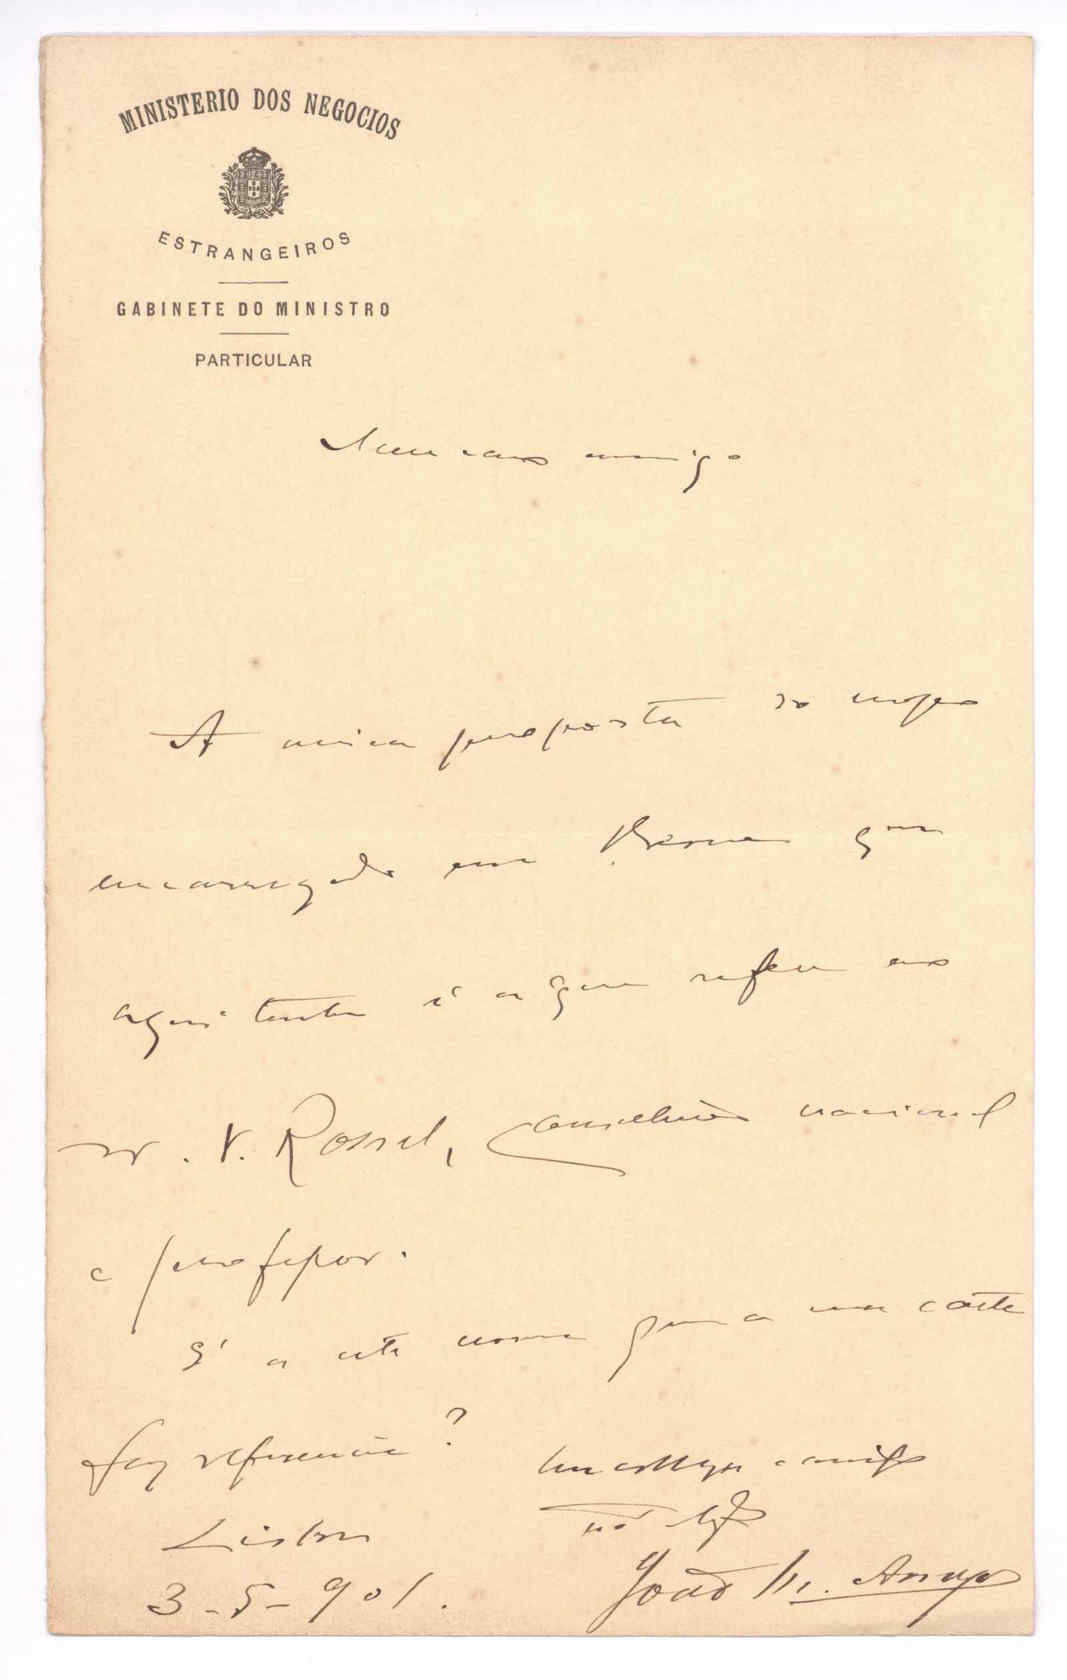 MINISTERIO DOS NEGOCIOS
ESTRANGEIROS
GABINETE DO MINISTRO
PARTICULAR
Meu caro amigo
A unica proposta do nosso
encarregado em Berne que
aqui tenho é a que refere ao
V. Rossel, Conselheiro nacional
e professor.
É a este nome que a sua carta
faz referencia?
amigo
Lisboa
3-5-901.
João M. Arroyo